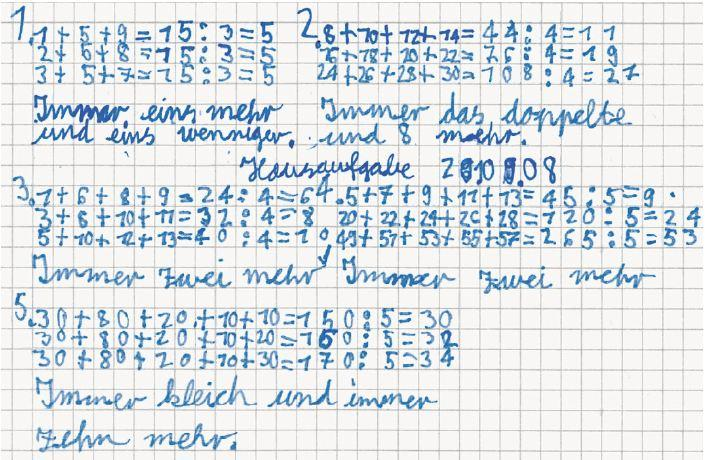 1. 1+5+9=15:3=5
2+5+8=15:3=5
3+5+7=15:3=5
Immer eins mehr
und eins wenniger.
2. 8+10+12+14=44:4=11
16+18+20+22=76:4=19
24+26+28+30=108:4=27
Immer das doppelte
und 8 mehr.
Hausaufgabe
3. 1+6+8+9=24:4=6
3+8+10+11=32:4=8
5+10+12+13=40:4=10
Immer zwei mehr
4. 5+7+9+11+13=45:5=9
20+22+24+26+28=120:5=24
49+51+53+55+57=265:5=53
Immer zwei mehr
5. 30+80+20+10+10=150:5=30
30+80+20+10+20=160:5=32
30+80+20+10+30=170:5=34
Immer kleich und immer
zehn mehr.